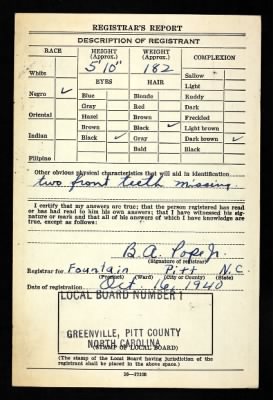 REGISTRAR'S REPORT
DESCRIPTION OF REGISTRANT
RACE HEIGHT (Approx.) WEIGHT (Approx.) COMPLEXION
5'10" 182
White Sallow
EYES HAIR Light
Negro ✓ Blue Blonde Ruddy
Gray Red Dark
Oriental Hazel Brown Freckled
Brown Black ✓ Light brown
Indian Black ✓ Gray Dark brown ✓
Bald Black
Filipino
Other obvious physical characteristics that will aid in identification
two front teeth missing
I certify that my answers are true; that the person registered has read
or has had read to him his own answers; that I have witnessed his sig-
nature or mark and that all of his answers of which I have knowledge
are true, except as follows:
B. A. Pope Jr.
(Signature of registrar)
Registrar for Fountain Pitt N.C
(Precinct) (Ward) (City or County) (State)
Date of registration Oct. 16, 1940
LOCAL BOARD NUMBER 1
GREENVILLE, PITT COUNTY
NORTH CAROLINA
(STAMP OF LOCAL BOARD)
(The stamp of the Local Board having jurisdiction of the
registrant shall be placed in the above space.)